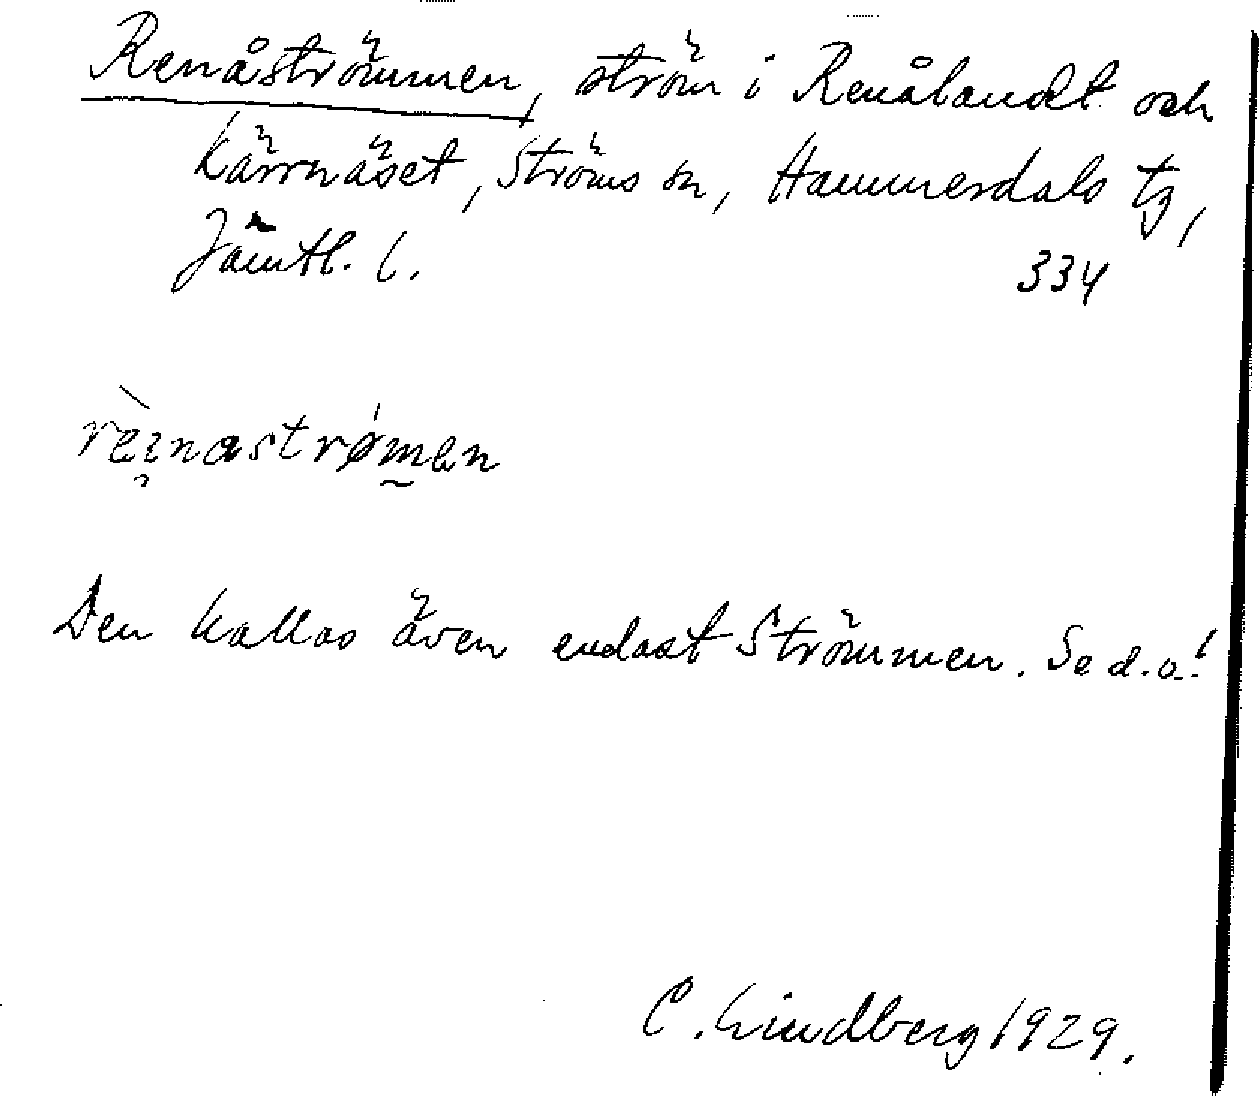 Renåströmmen, ström i Renålandet och
Kärrnäset, Ströms sn, Hammerdals tg,
Jämtl. l.
334
rèinaströ́men
Den kallas även endast Strömmen. Se d.o.!
C. Lindberg 1929.